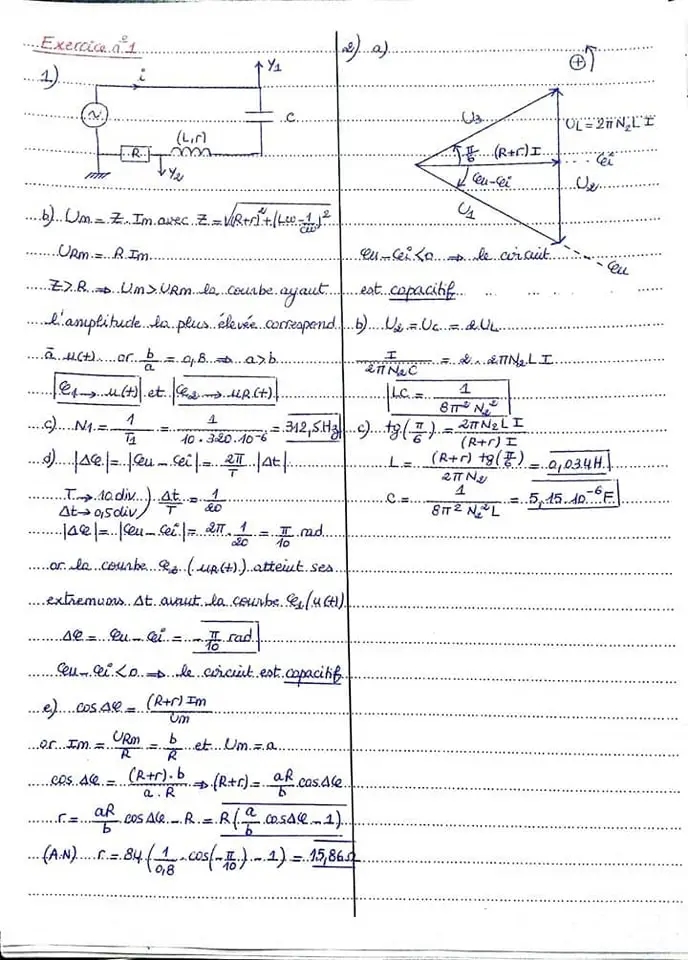 Exercice n°1
1)
i
Y1
C
R
(L,r)
Y2
b) Um = Z . Im avec Z = √((R+r)² + (Lω - 1/Cω)²)
URm = R Im
Z > R ⇒ Um > URm la courbe ayant
l'amplitude la plus élevée correspond
à u(t). or b/a = 0,8 ⇒ a > b
φ1 → u(t) et φ2 → uR(t)
c) N1 = 1/T1 = 1/(10 . 320 . 10⁻⁶) = 312,5 Hz
d) |Δφ| = |φu - φi| = 2π/T |Δt|
T → 10 div
Δt → 0,5 div) Δt/T = 1/20
|Δφ| = |φu - φi| = 2π . 1/20 = π/10 rad
or la courbe φ2 (uR(t)) atteint ses
extremums Δt avant la courbe φ1 (u(t))
Δφ = φu - φi = - π/10 rad
φu - φi < 0 ⇒ le circuit est capacitif
e) cos Δφ = (R+r) Im / Um
or Im = URm/R = b/R et Um = a
cos Δφ = (R+r) . b / a . R ⇒ (R+r) = aR/b cos Δφ
r = aR/b cos Δφ - R = R(a/b cos Δφ - 1)
(A.N) r = 84 (1/0,8 . cos(-π/10) - 1) = 15,86 Ω
2) a)
+
U3
UL = 2πN2 L I
π/6 (R+r) I
φi
φu - φi
U2
U1
φu
φu - φi < 0 ⇒ le circuit
est capacitif
b) U2 = Uc = 2 UL
I / 2πN2C = 2 . 2πN2 L I
LC = 1 / 8π² N2²
c) tg(π/6) = 2πN2 L I / (R+r) I
L = (R+r) tg(π/6) / 2πN2 = 0,034 H
C = 1 / 8π² N2² L = 5,15 . 10⁻⁶ F